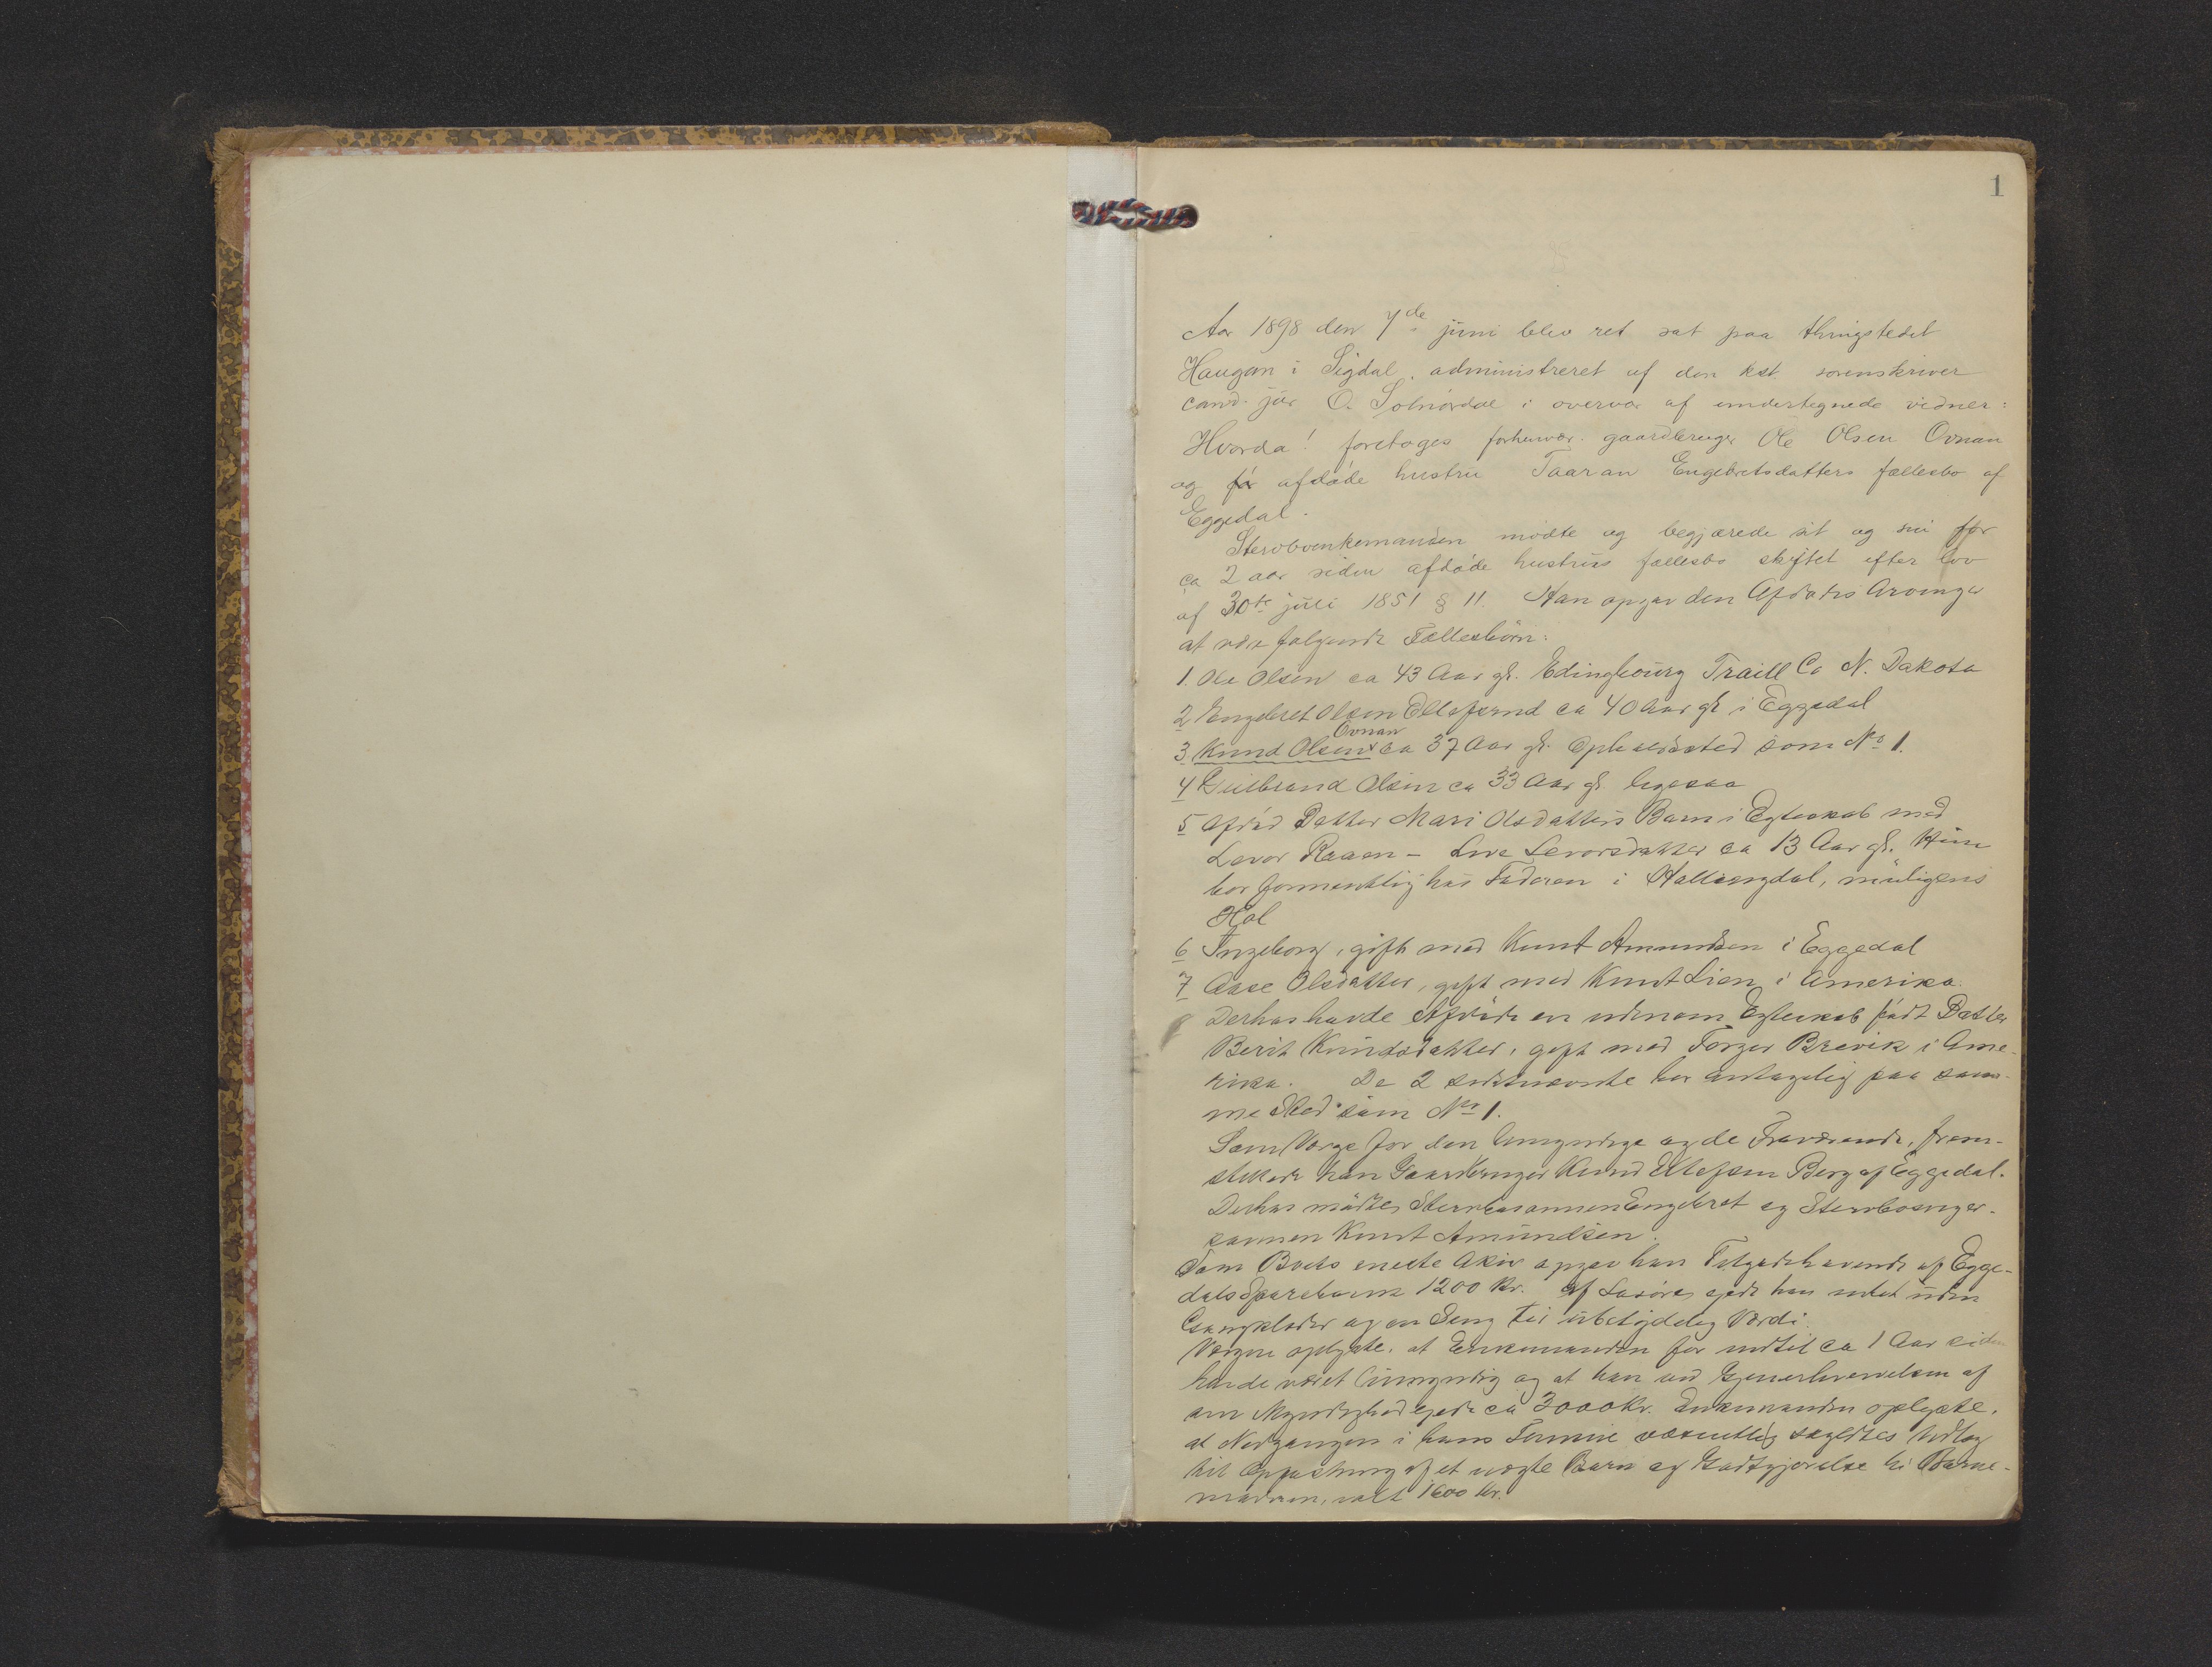 1
Aar 1898 den 7de juni blev ret sat paa thingstedet
Haugan i Sigdal, administreret af den kst. sorenskriver
cand. jur O. Solnørdal i overvær af undertegnede vidner:
Hvorda! foretoges forhenvær. gaardbruger Ole Olsen Ovnan
og afdøde hustru Taaran Engebretsdatters fællesbo af
Eggedal.
Stervboenkemanden mødte og begjærede sit og sin for
ca 2 aar siden afdøde hustrus fællesbo skiftet efter lov
af 30te juli 1851 § 11. Han opgav den Afdødes Arvinger
at være følgende Fællesbørn:
1. Ole Olsen ca 43 Aar gl. Edingbourg Traill Co N. Dakota
2 Engebret Olsen Ellefsrud ca 40 Aar gl i Eggedal
Ovnan
3 Knud Olsen ca 37 Aar gl. Opholdssted som No 1.
4 Gulbrand Olsen ca 33 Aar gl ligesaa
5 Afdød Datter Mari Olsdatters Barn i Egteskab med
Levor Raaen - Levorsdatter ca 13 Aar gl. Hun
bor formentlig hos Faderen i Hallingdal, muligens
Hol
6 Ingeborg, gift med Knut Amundsen i Eggedal
7 Aase Olsdatter, gift med Knut Lien i Amerika.
Derhos havde Afdøde en udenom Egteskab født Datter
Berit Knudsdatter, gift med Torger Brevik i Ame-
rika. De 2 sidstnævnte bor antagelig paa sam-
me Sted som No 1.
Som Værge for den Umyndige og de Fraværende, frem-
stillede han Gaardbruger Knud Ellefsen Berg af Eggedal.
Derhos mødte Stervbosønnen Engebret og Stervbosviger-
sønnen Knut Amundsen.
Som Boets eneste Aktiv opgav han Tilgodehavende af Egge-
dals Sparebank 1200 Kr. Af Løsøre ejede han intet uden
Gangklæder og en Seng til ubetydelig Værdi.
Værgen oplyste, at Enkemanden for indtil ca 1 Aar siden
havde været Umyndig og at han ved Gjenerhvervelsen af
sin Myndighed ejede ca 3000 Kr. Enkemanden oplyste,
at Nedgangen i hans Formue væsentlig skyldtes Udlæg
til Opfostring af et uægte Barn og Godtgjørelse til Barne-
moderen, ialt 1600 Kr.